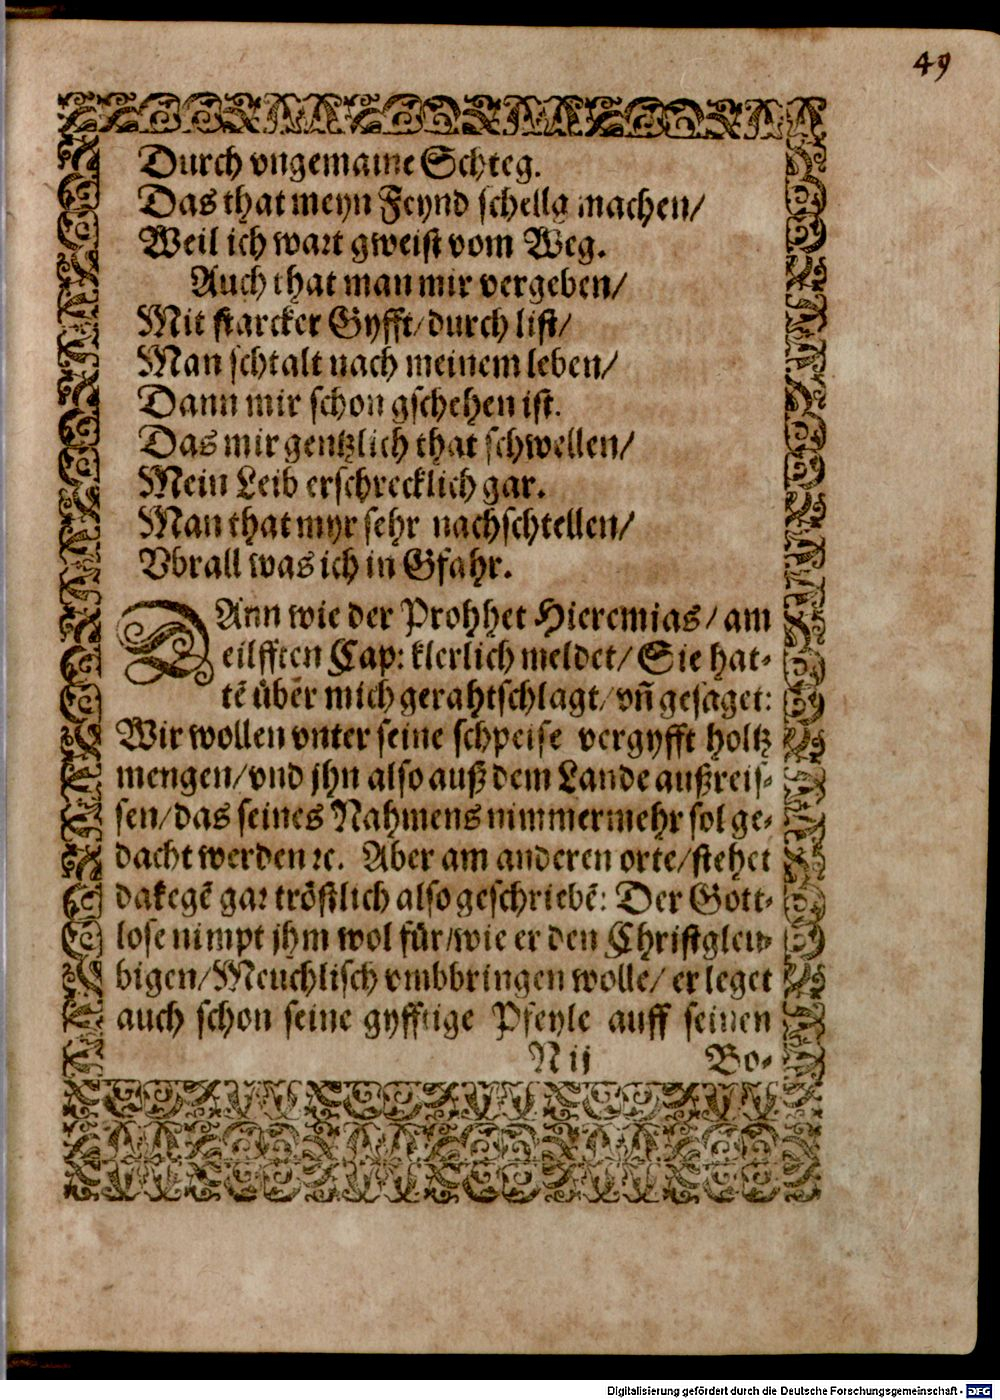 49
Durch vngemaine Schteg.
Das that meyn Feynd schellg machen/
Weil ich wart gweist vom Weg.
Auch that man mir vergeben/
Mit starcker Gyfft/durch list/
Man schtalt nach meinem leben/
Dann mir schon gschehen ist.
Das mir gentzlich that schwellen/
Mein Leib erschrecklich gar.
Man that myr sehr nachschtellen/
Vbrall was ich in Gfahr.
DAnn wie der Prohhet Hieremias/ am
eilfften Cap: klerlich meldet/ Sie hat⸗
tē übēr mich gerahtschlagt/ vñ gesaget:
Wir wollen vnter seine schpeise vergyfft holtz
mengen/vnd jhn also auß dem Lande außreis⸗
sen/das seines Nahmens nimmermehr sol ge⸗
dacht werden ꝛc. Aber am anderen orte/stehet
dakegē gar tröstlich also geschriebē: Der Gott⸗
lose nimpt jhm wol für/wie er den Christgleu⸗
bigen/Meuchlisch vmbbringen wolle/ er leget
auch schon seine gyfftige Pfeyle auff seinen
N ij Bo⸗
Digitalisierung gefördert durch die Deutsche Forschungsgemeinschaft - DFG